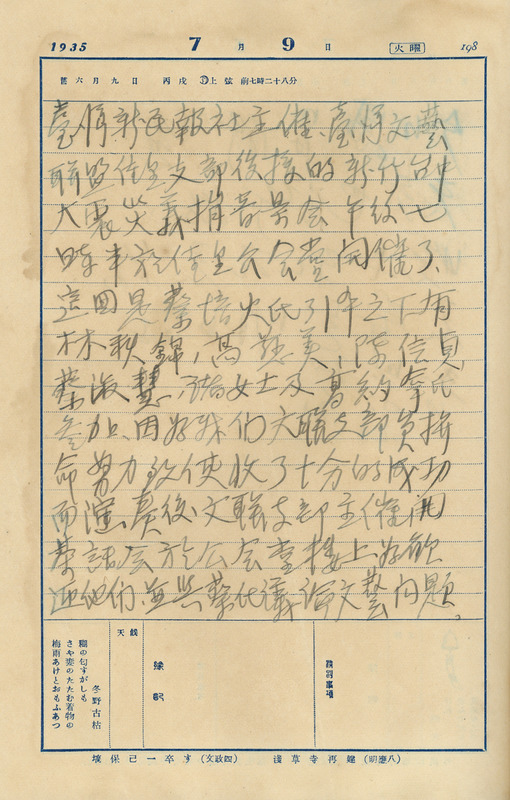 1935 7月9日 火曜 198
舊六月九日 丙戌 上弦 前七時二十八分
臺湾新民報社主催、臺湾文藝
聯盟佳里支部後援的新竹台中
大震災義捐音樂会午後七
時半於佳里公会堂開催了、
這回是蔡培火氏引率之下有
林秋錦、高慈美、陳信貞、
蔡淑慧、諸女士及高約拿氏
參加、因為我们文聯支部員拼
命努力致使收了十分的成功
而演奏後文聯支部主催開
茶話会於公会堂樓上為歡
迎他們、並與蔡氏議論文藝问題。
天候
豫記
特別事項
冬野古枯
糊の匂すがしも
さや裳のたたむ着物の
梅雨あけとおもふあつ
壞保己一卒す(文政四) 淺草寺再建(明應八)